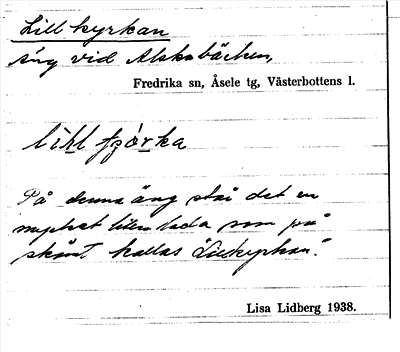 Lillkyrkan
äng vid Alskabäcken,
Fredrika sn, Åsele tg, Västerbottens l.
På denna äng står det en
mycket liten lada som på
skämt kallas "Lillkyrkan".
Lisa Lidberg 1938.